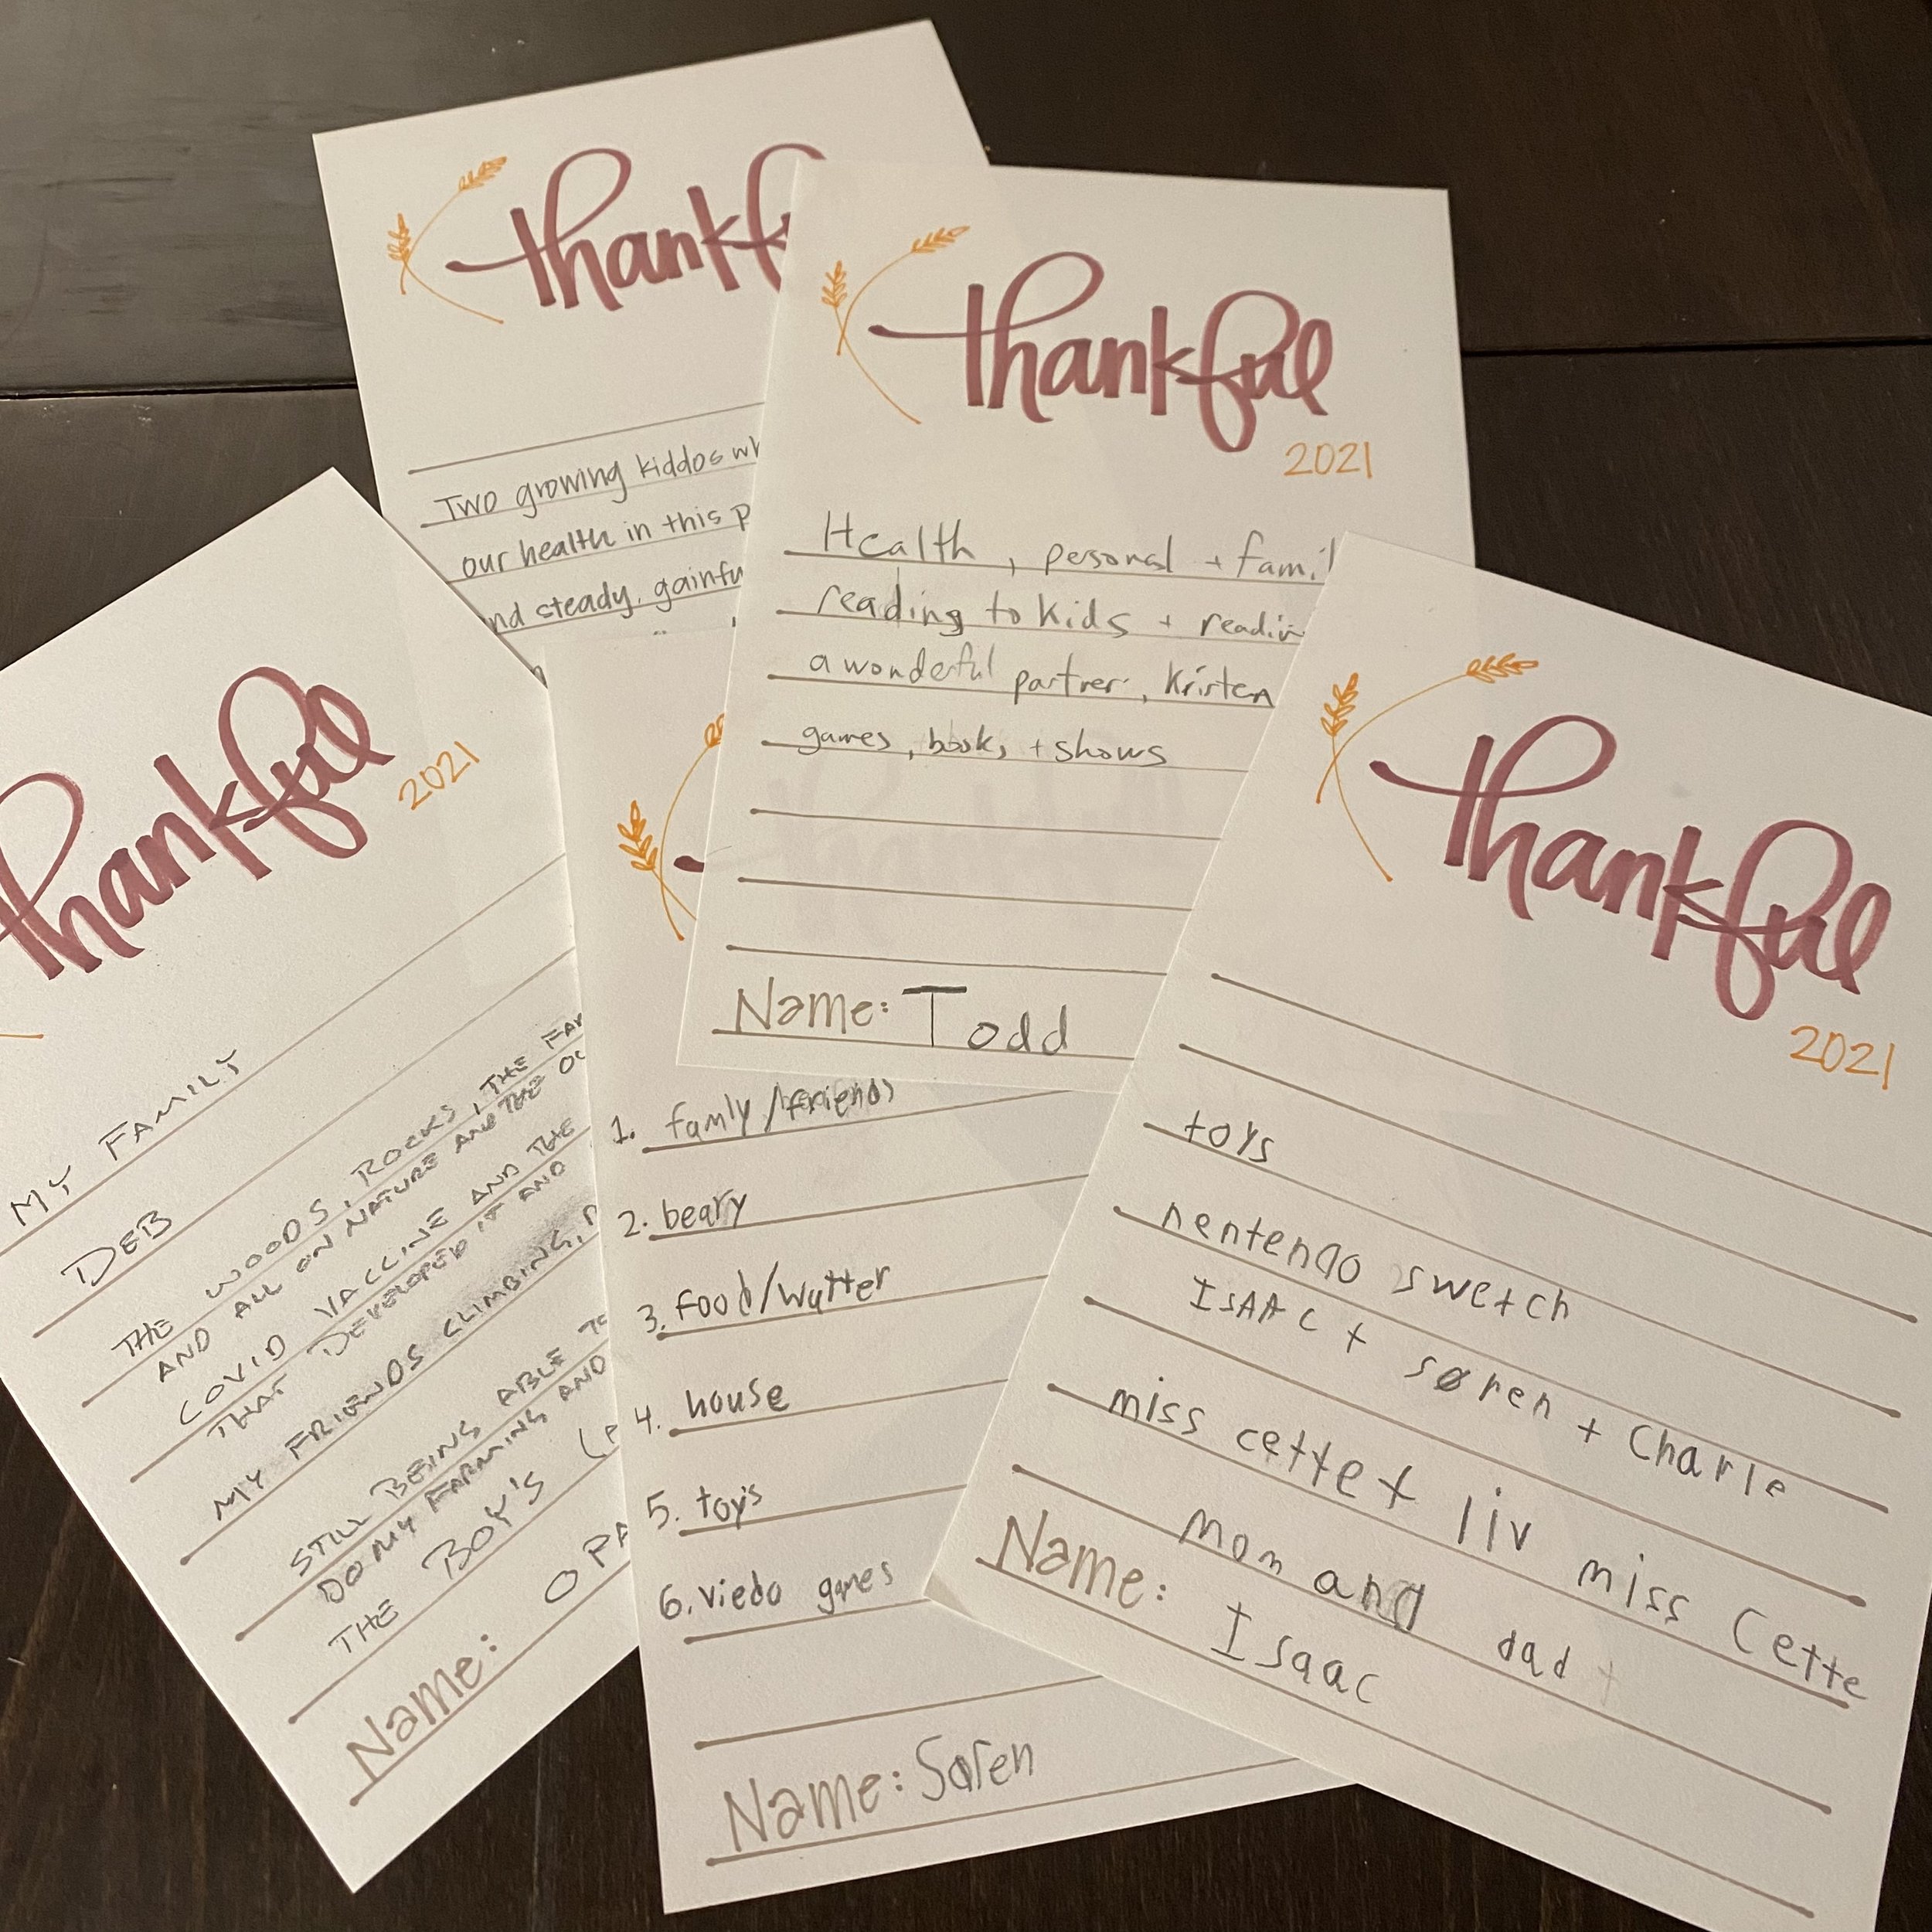 thankfu
Two growing kiddos wh
our health in this p
nd steady, gainfu
thankful
2021
Health, personal + famil
reading to kids + readin
a wonderful partner, Kristen
games, books, + shows
Name: Todd
thankful
2021
MY FAMILY
DEB
THE WOODS, ROCKS, THE FAR
AND ALL ON NATURE AND THE OU
COVID VACCINE AND THE
THAT DEVELOPED IT AND
MY FRIENDS CLIMBING,
STILL BEING ABLE TO
DO MY FARMING AND
THE BOY'S
Name: OPA
1. famly/friends
2. beary
3. Food/Watter
4. house
5. toy's
6. viedo games
Name: Søren
thankful
2021
toys
nentendo swetch
ISAAC + søren + Charle
miss cette + liv miss Cette
mom and dad +
Name: Isaac